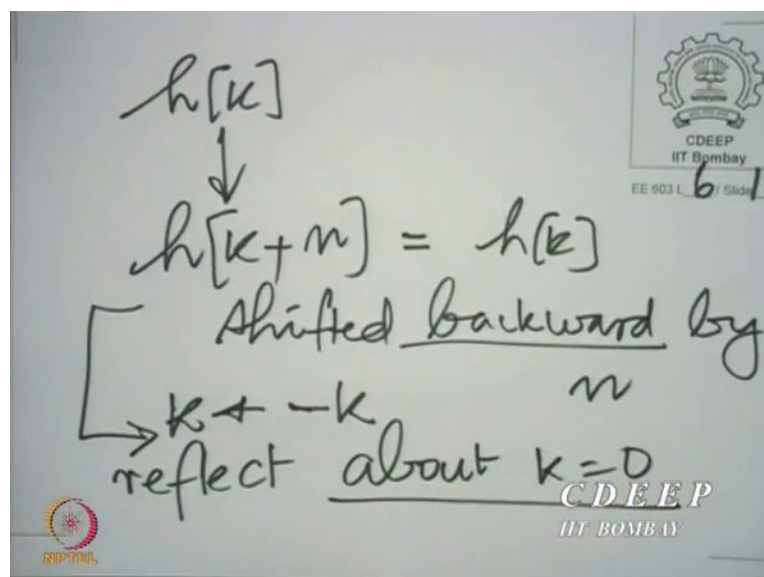 h[k]
CDEEP
IIT Bombay
EE 603 L 6 / Slide 1
h[k+n] = h[k]
shifted backward by
n
k ← -k
reflect about k=0
CDEEP
IIT BOMBAY
NPTEL